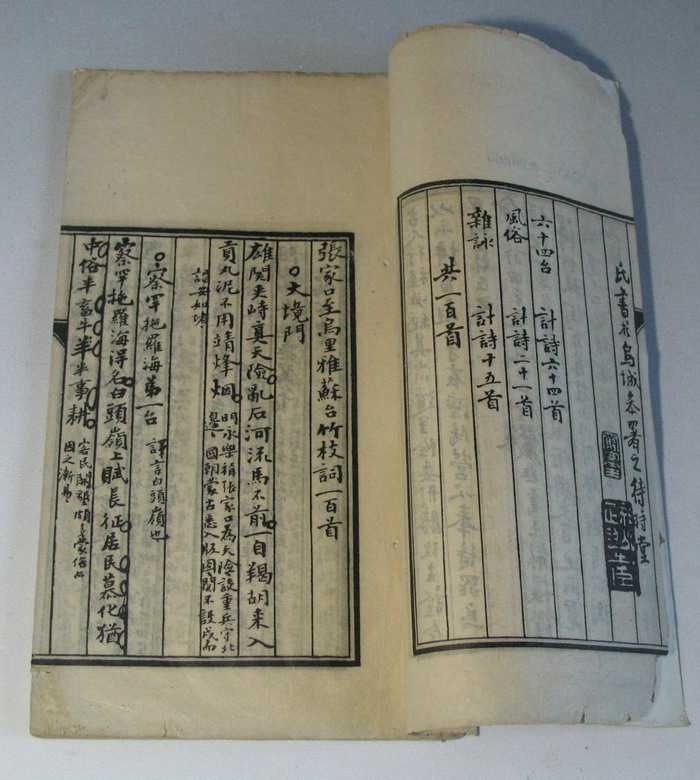 氏書於烏城參署之待時堂
六十四台 計詩六十四首
風俗 計詩二十一首
雜詠 計詩十五首
共一百首
張家口至烏里雅蘇台竹枝詞一百首
大境門
雄關夹峙真天險亂石河流馬不前一自羯胡来入
貢丸泥不用靖烽烟 明永樂稱張家口為天險設重兵守北
邊國朝蒙古悉入版圖關不設戍而
諡安如堵
察罕拖羅海第一台 譯言白頭嶺也
察罕拖羅海得名白頭嶺上賦長征居民慕化猶
中俗半畜牛羊半事耕 客民開墾頗多蒙俗
因之漸易